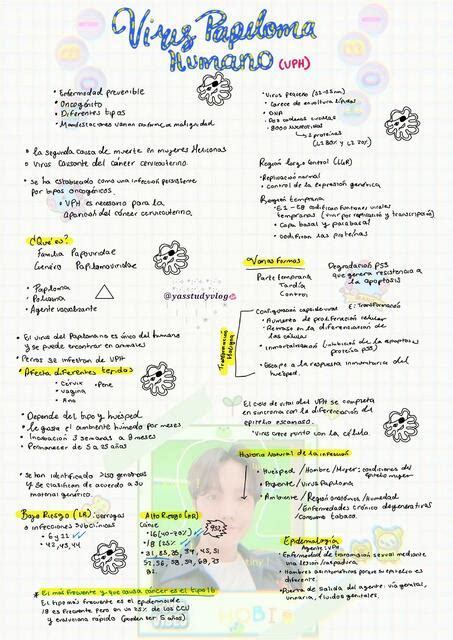 Virus Papiloma
Humano (VPH)
• Enfermedad prevenible
• Oncogénito
• Diferentes tipos
• Manifestaciones varian conforme a malignidad
• la segunda causa de muerte en mujeres Mexicanas
• Virus causante del cáncer cervicouterino.
• se ha establecido como una infección persistente
por tipos oncogénicos.
• VPH es necesario para la
aparición del cáncer cervicouterino.
¿Qué es?
Familia Papovaviridae
Genéro Papilomaviridae
• Papiloma
• Polioma
• Agente vacuolante
@yasstudyvlog
• El virus del Papiloma es único del humano
y se puede encontrar en animales
• Perros se infectan de VPH
Afecta diferentes tejidos
• Cérvix • Pene
• Vagina
• Ano
• Depende del tipo y huésped.
• le gusta el ambiente húmedo por meses.
• Incubación 3 semanas a 8 meses
• Permanecer de 5 a 25 años
• se han identificado >150 genotipos
y se clasifican de acuerdo a su
material genético.
Bajo Riesgo (LR): verrugas
o infecciones subclínicas
• 6 y 11
• 42, 43, 44
Alto Riesgo (HR)
Cáncer
• 16 (40-70%)
• 18 (25%)
• 31, 33, 35, 39, 45, 51
52, 56, 58, 59, 68, 73
82.
El más frecuente y que causa cáncer es el tipo 16
El tipo más frecuente es el epidermoide
18 es frecuente pero en un 25% de los CCU
y evoluciona rápida (pueden ser 5 años)
• Virus pequeño (52-55nm)
• Carece de envoltura lipídica
• DNA
• 8000 nucleótidos
2 proteínas
(L1 80% y L2 20%)
Región larga control (LCR)
• Replicación normal
• Control de la expresión genética
Región temprana
• E1 - E8 codifican funciones virales
tempranas (vivir por replicación y transcripción)
• Capa basal y parabasal
• codifican las proteínas
Varias formas
Parte temprana
Tardía
Control
Degradación p53
que genera resistencia a
la apoptosis
E: Transformación
Transformación
Maligna
• Configuración capsideviral
• Aumento de proliferación celular
• Retraso en la diferenciación de
las células
• Inmortalización (inhibición de la apoptosis
proteína p53)
• Escape a la respuesta inmunitaria del
huésped.
El ciclo de vital del VPH se completa
en sincronía con la diferenciación del
epitelio escamoso.
• Virus crece junto con la célula.
Historia Natural de la infección
• Huésped / Hombre / Mujer: condiciones del
epitelio mujer
• Agente / Virus Papiloma
• Ambiente / Región anatómica / Humedad
/ Enfermedades crónico degenerativas
/ Consumo tabaco.
Epidemología
Agente: VPH
• Enfermedad de transmisión sexual mediante
una lesión / raspadura
• Hombres asintomáticos porque su epitelio es
diferente.
• Puerta de Salida del agente: vía genital,
urinaria, fluidos genitales.